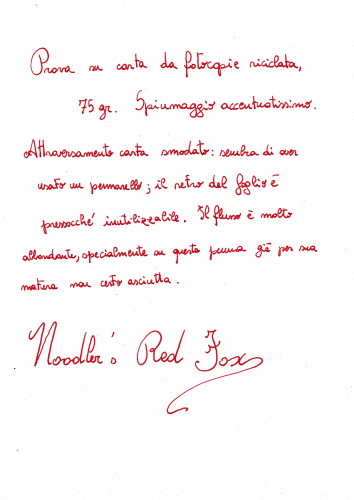 Prova su carta da fotocopie riciclata,
75 gr. Spiumaggio accentuatissimo.
Attraversamento carta smodato: sembra di aver
usato un pennarello; il retro del foglio è
pressocché inutilizzabile. Il flusso è molto
abbondante, specialmente su questa penna già per sua
natura non certo asciutta.
Noodler's Red Fox